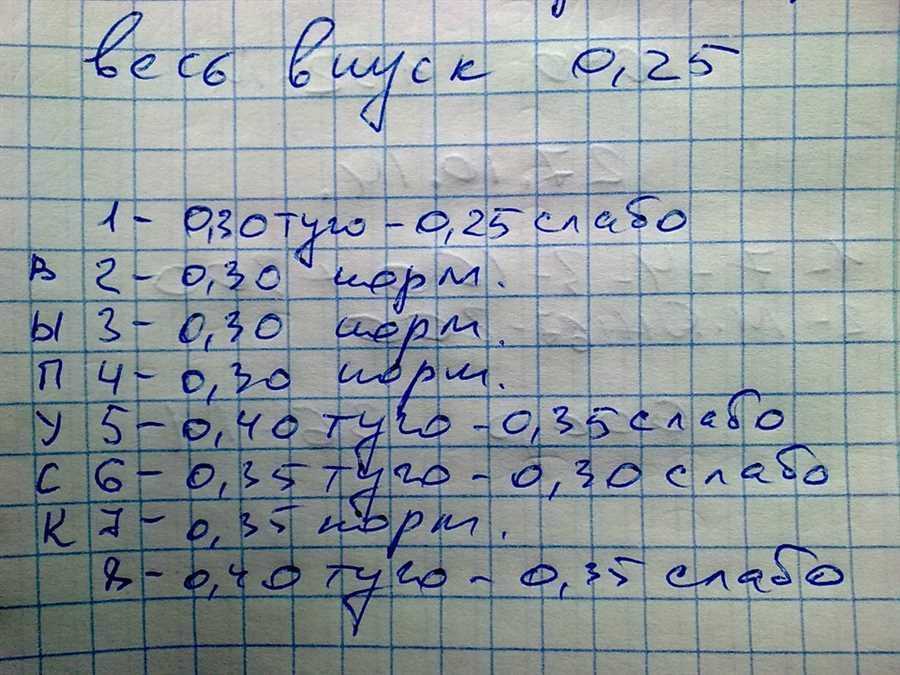 весь впуск 0,25
1 - 0,30 туго - 0,25 слабо
В 2 - 0,30 норм.
Ы 3 - 0,30 норм.
П 4 - 0,30 норм.
У 5 - 0,40 туго - 0,35 слабо
С 6 - 0,35 туго - 0,30 слабо
К 7 - 0,35 норм.
8 - 0,40 туго - 0,35 слабо